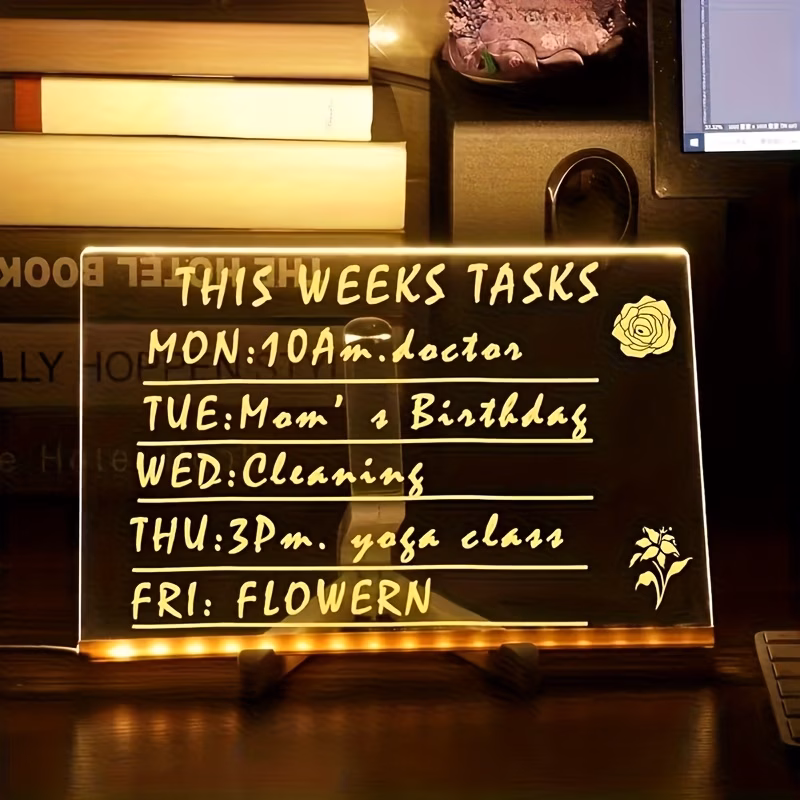 THE HOTEL BOOK
THIS WEEKS TASKS
MON:10Am.doctor
TUE:Mom's Birthday
WED:Cleaning
THU:3Pm. yoga class
FRI: FLOWERN